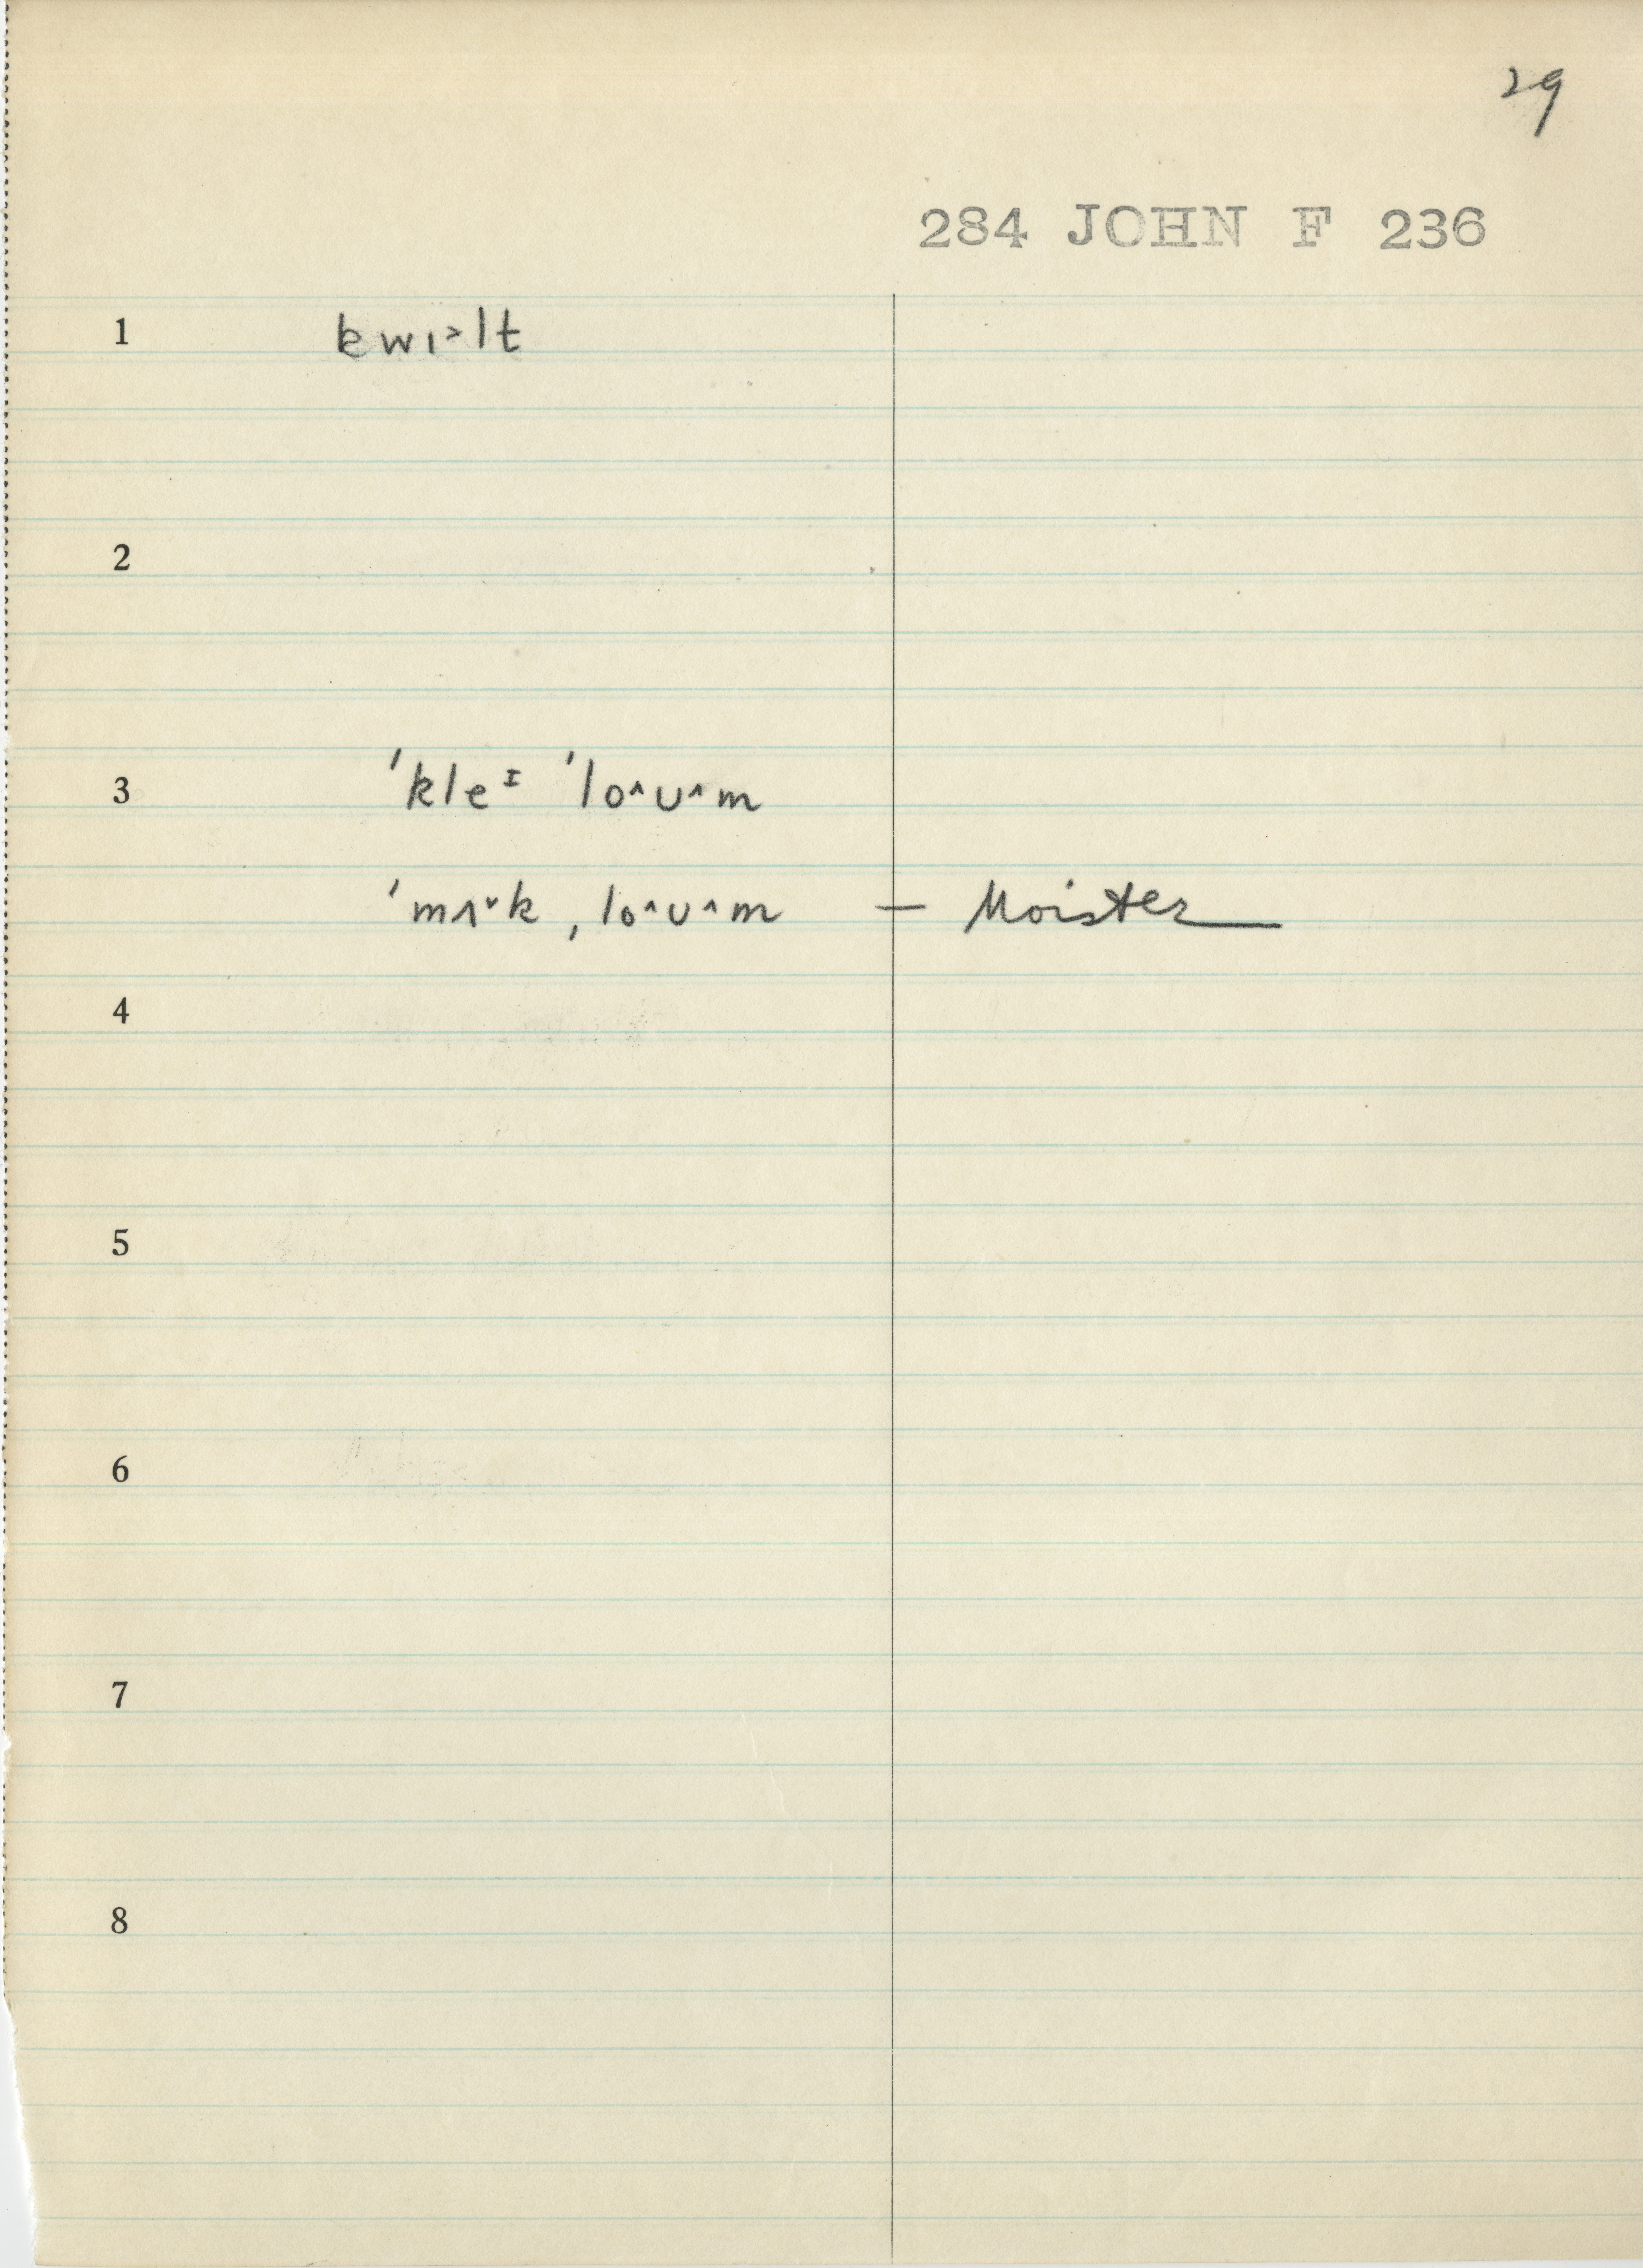 29
284 JOHN F 236
1 kwɪ˃lt
2
3 ˈkleᴵ ˈlo^ʊ^m
ˈmʌˇk ˌlo^ʊ^m — Moister
4
5
6
7
8